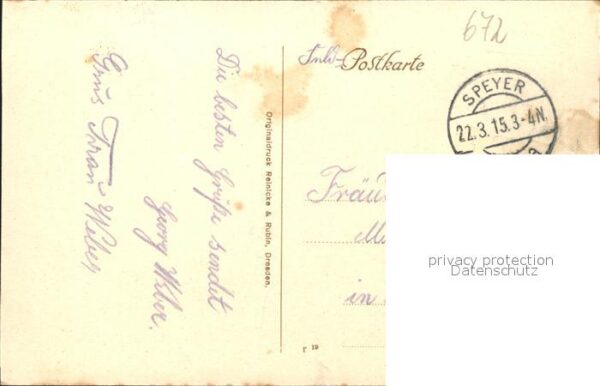 672
Feld-Postkarte
SPEYER
22.3.15.3-4N.
Die besten Grüße sendet
Georg Weber.
Gruß Frau Weber
Originaldruck Reinicke & Rubin, Dresden.
Fräu
in
privacy protection
Datenschutz
19